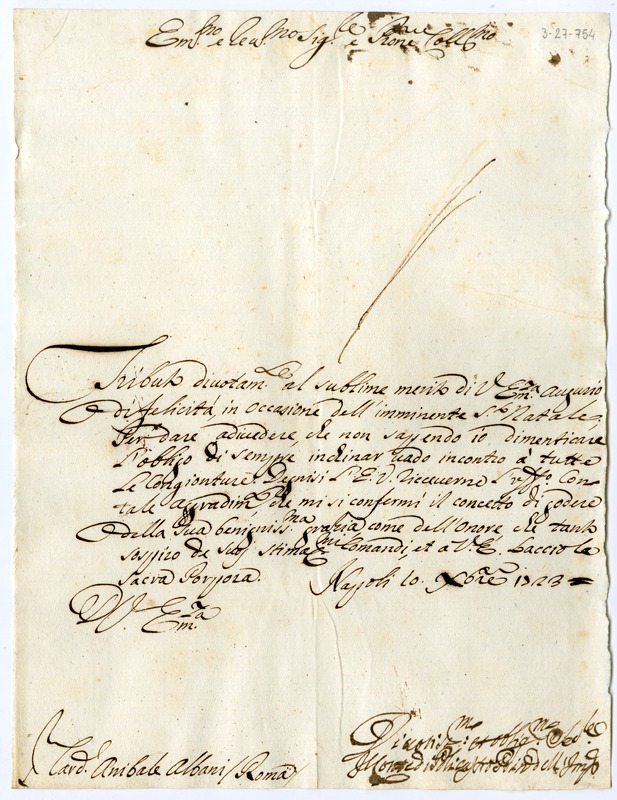 Em.mo e Rev.mo Sig.re e Prone Coll.mo
3-27-754
Tributo divotam.te al sublime merito di V. Em.za augurio
di felicità, in occasione dell'imminente S.to Natale,
Per dare à divedere, che non sapendo io dimenticare
l'obligo di sempre inchinar vado incontro à tutte
le Congionture. Degnisi l'E. V. riceverne l'uff.o con
tale agradim.to che mi si confermi il concetto di godere
della Sua benigniss.ma grazia come dell'Onore che tanto
sospiro de suoi stimat.mi Comandi, et a V. E. baccio la
Sacra Porpora. Napoli 10. Xbre 1723
D. V. Em.za
Card. Anibale Albani Roma
Divotis.mo et Obbl.mo